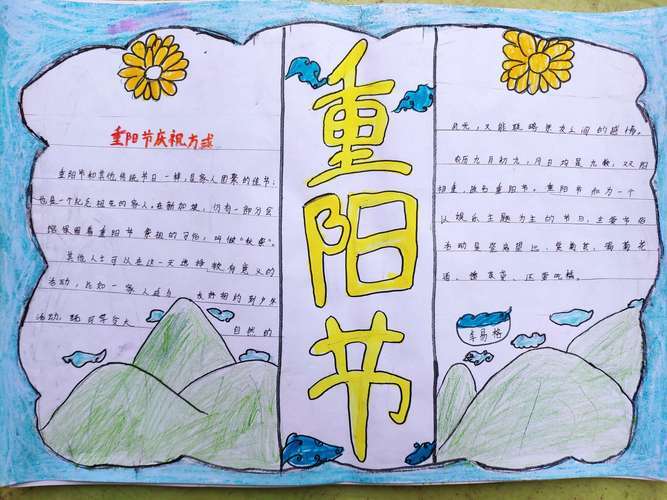 重阳节庆祝方式
重阳节和其他传统节日一样,是家人团聚的佳节;
也是一个纪念祖先的家人。在新加坡,仍有一部分家
庭保留着重阳节祭祖的习俗,叫做"秋祭"。
其他人士可以在这一天选择较有意义的
活动,比如一家人或与友好相约到户外
活动,既可享受大
自然的
重阳节
阳光,又能联络朋友之间的感情。
农历九月初九,月日均是九数,双阳
相重,故名重阳节。重阳节和为一个
以娱乐主题为主的节日,主要节俗
活动是登高望远、赏菊花、喝菊花
酒、